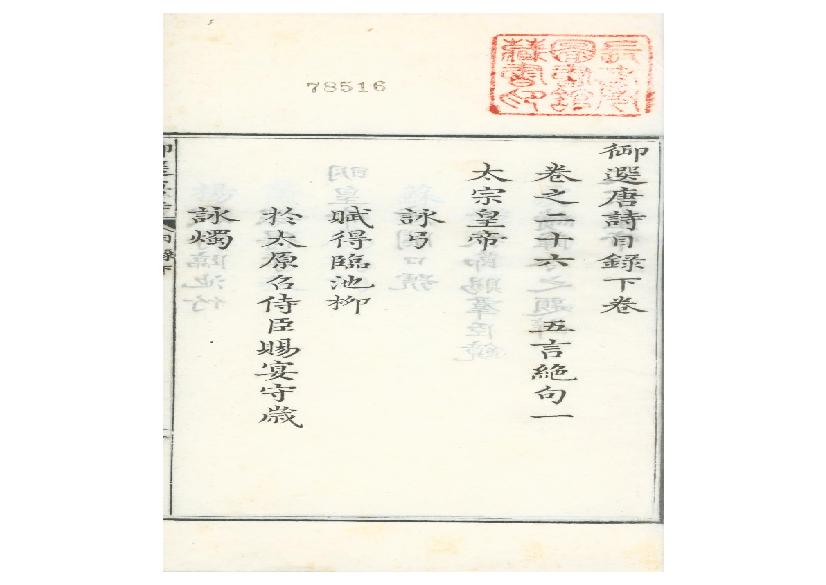 78516
御選唐詩目錄下卷
卷之二十六 五言絕句一
太宗皇帝
詠弓
賦得臨池柳
於太原召侍臣賜宴守歲
詠燭